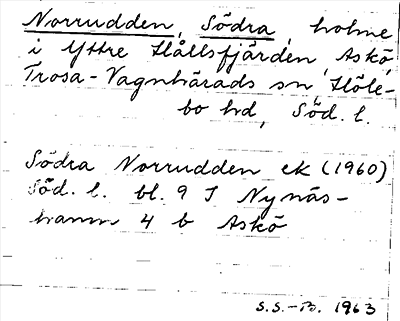 Norrudden, Södra, holme
i Yttre Hållsfjärden, Askö,
Trosa-Vagnhärads sn, Höle-
bo hd, Söd. l.
Södra Norrudden ek (1960)
Söd. l. bl. 9 I Nynäs-
hamn 4 b Askö
S.S.-B. 1963